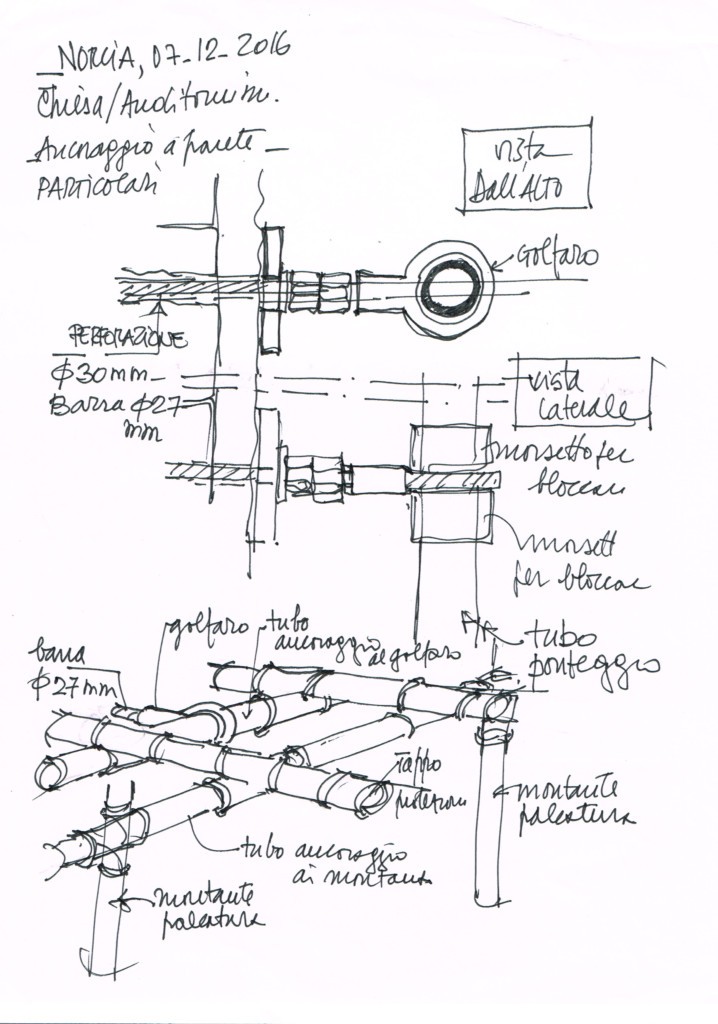 NORCIA, 07-12-2016
Chiesa/Auditorium.
Ancoraggio a parete
PARTICOLARI
vista
Dall'ALTO
GOLFARO
PERFORAZIONE
φ30mm
Barra φ27
mm
vista
laterale
morsetto per
bloccare
morsett
per bloccare
golfaro
tubo
ancoraggio
al golfaro
barra
φ27mm
tubo
ponteggio
tappo
protezione
montante
palcatura
tubo ancoraggio
ai montanti
montante
palcatura